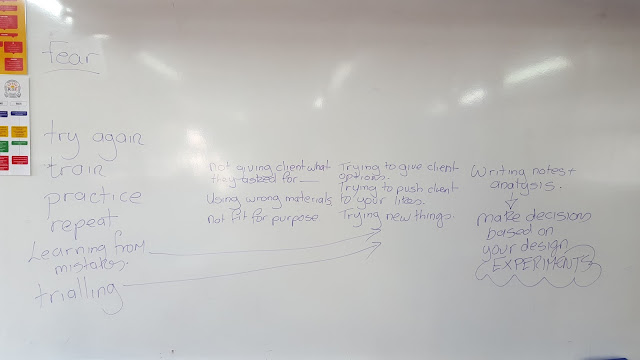 fear
try again
train
practice
repeat
Learning from
mistakes.
trialling
Not giving client what
they asked for
Using wrong materials
Not fit for purpose
Trying to give client
options.
Trying to push client
to your likes.
Trying new things.
Writing notes +
analysis.
make decisions
based on
your design
EXPERIMENTS